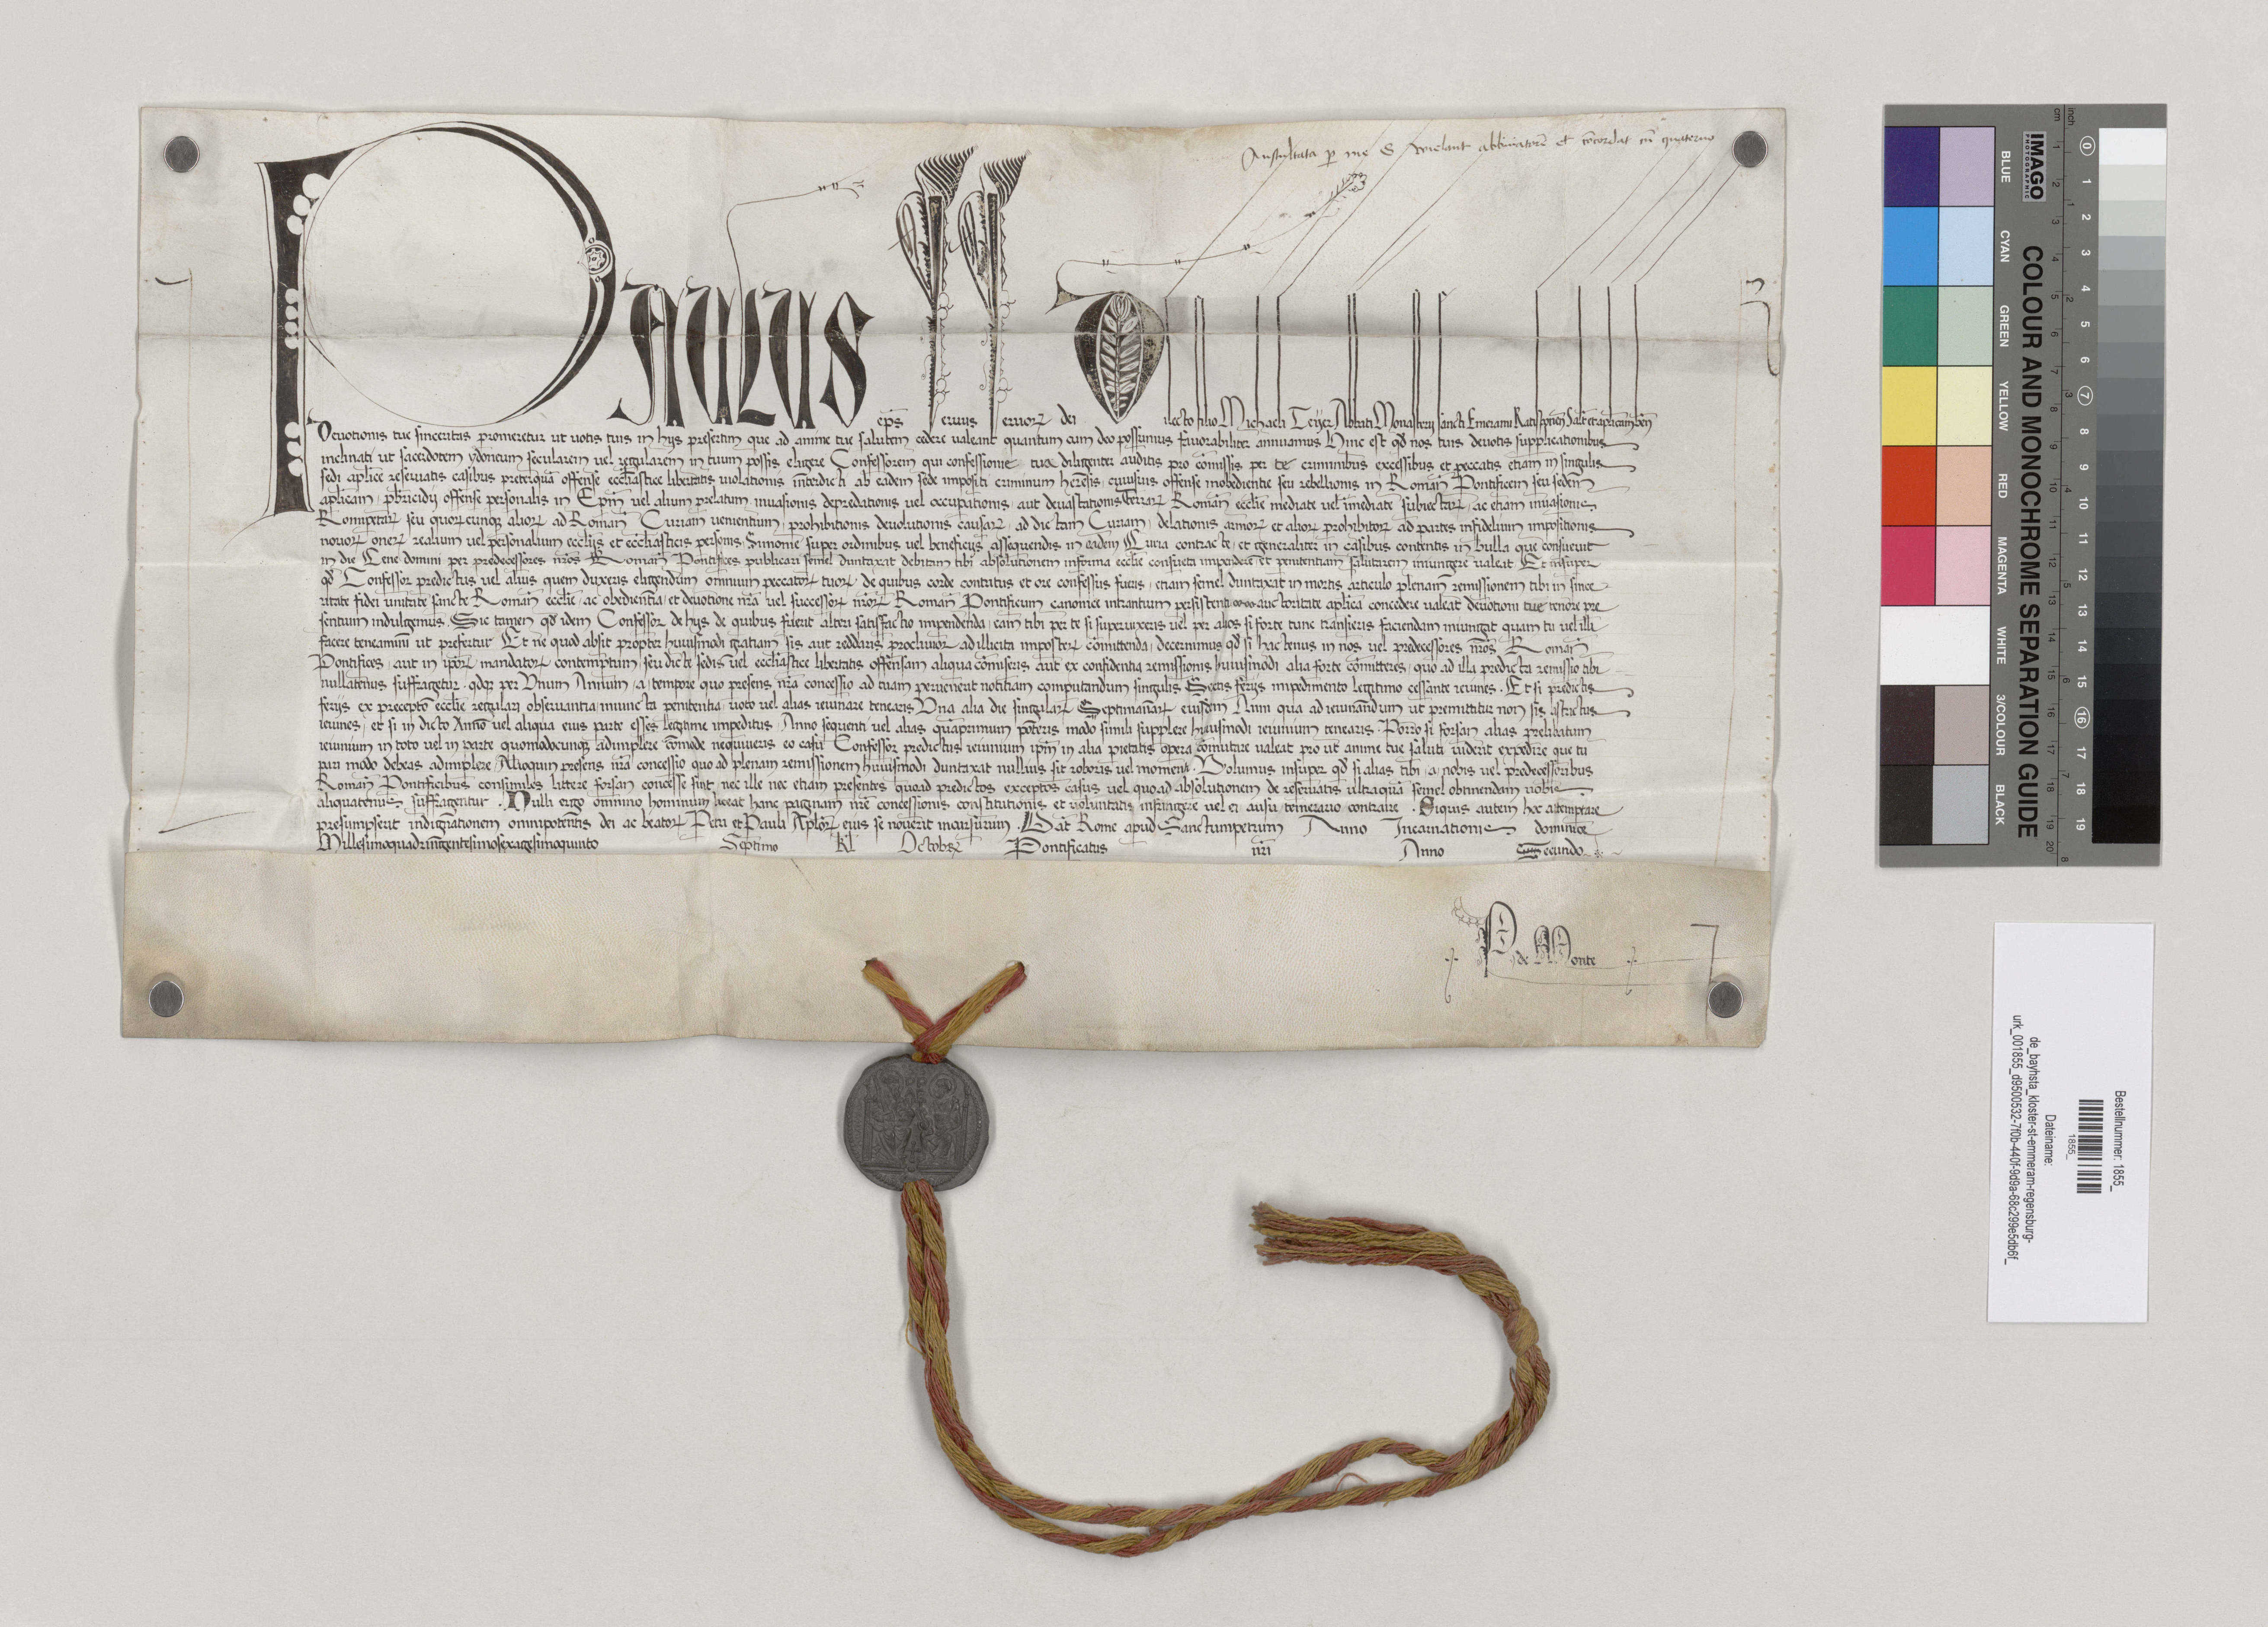 Auscultata p me S wielant abbreuiatorē et cōcordat cū quaterno
PAULUS ep̄s seruus seruorꝝ dei Dilecto filio Michaeli Abbati Monasterij sancti Emerami Ratisponeñ Salt̄ et aplicam beñ
Deuotionis tue sinceritas promeretur ut uotis tuis in hys presertim que ad anime tue salutem cedere ualeant quantum cum deo possumus fauorabiliter annuamus Hinc est qd̄ nos tuis deuotis supplicationibus
inclinati ut sacerdotem ydoneum secularem uel regularem in tuum possis eligere Confessorem qui confessione tua diligenter auditis pro cōmissis per te criminibus excessibus et peccatis etiam in singulis
sedi aplice reseruatis casibus preterquā offense ecclesiastice libertatis uiolationis interdicti ab eadem sede impositi criminum heresis, cuiusuis offense inobedientie seu rebellionis in Romañ Pontificem seu sedem
aplicam, pb̄ricidij offense personalis in Ep̄m uel alium prelatum, inuasionis depredationis uel occupationis, aut deuastationis terrarꝝ Romañ ecclie mediate uel īmediate subiectarꝝ, ac etiam inuasionis
Romipetarꝝ seu quorꝝcunqꝫ aliorꝝ ad Romañ Curiam uenientium, prohibitionis deuolutionis causarꝝ, ad dictam Curiam, delationis armorꝝ et aliorꝝ prohibitorꝝ ad partes infidelium impositionis
nouorꝝ onerꝝ realium uel personalium ecclijs et ecclesiasticis personis, Simonie super ordinibus uel beneficijs assequendis in eadem Curia contracte, et generaliter in casibus contentis in bulla que consueuit
in die Cene domini per predecessores nr̄os Romañ Pontifices publicari semel duntaxat debitam tibi absolutionem in forma ecclie consueta impendere et penitentiam salutarem iniungere ualeat Et insuper
qd̄ Confessor predictus uel alius quem duxeris eligendum omnium peccatorꝝ tuorꝝ de quibus corde contritus et ore confessus fueris, etiam semel duntaxat in mortis articulo plenam remissionem tibi in since
ritate fidei unitate sancte Romañ ecclie, ac obedientia, et deuotione nr̄a uel successorꝝ nr̄orꝝ Romañ Pontificum canonice intrantium persistenti auctoritate aplica concedere ualeat deuotioni tue tenore pre
sentium indulgemus. Sic tamen qd̄ idem Confessor de hys de quibus fuerit alteri satisfactio impendenda, eam tibi per te si superuixeris uel per alios si forte tunc transieris faciendam iniungat quam tu uel illi
facere teneamini ut prefertur Et ne quod absit propter huiusmodi gratiam sis aut reddaris procliuior ad illicita imposterꝝ cōmittenda, decernimus qd̄ si hactenus in nos uel predecessores nr̄os Romañ
Pontifices, aut in ip̄orꝝ mandatorꝝ contemptum, seu dicte sedis uel ecclesiastice libertatis offensam aliqua cōmiseris aut ex confidentia remissionis huiusmodi alia forte cōmitteres, quo ad illa predicta remissio tibi
nullatenus suffragetur, qdqꝫ per Vnum Annum, a, tempore quo presens nr̄a concessio ad tuam peruenerit notitiam computandum singulis Sextis ferijs impedimento legitimo cessante ieiunes. Et si predictis
ferijs ex precepto ecclie regulari obseruantia iniuncta penitentia, uoto uel alias ieiunare tenearis Vna alia die singularꝝ Septimanarꝝ eiusdem Anni qua ad ieiunandum ut premittitur non sis astrictus
ieiunes, et si in dicto Anno uel aliqua eius parte esses legitime impeditus, Anno sequenti uel alias quamprimum poteris modo simili supplere huiusmodi ieiunium tenearis. Porro si forsan alias prelibatum
ieiunium in toto uel in parte quomodocunqꝫ adimplere cōmode nequiueris eo casu Confessor predictus ieiunium ip̄m in alia pietatis opera cōmutare ualeat pro ut anime tue saluti uiderit expedire que tu
pari modo debeas adimplere, Alioquin presens nr̄a concessio quo ad plenam remissionem huiusmodi duntaxat nullius sit roboris uel momenti. Volumus insuper qd̄ si alias tibi, a, nobis uel predecessoribus
Romañ Pontificibus consimiles littere forsan concesse sint, nec ille nec etiam presentes quoad predictos exceptos casus uel quoad absolutionem de reseruatis ultraquā semel obtinendam uobis
aliquatenus suffragentur. Nulli ergo omnino hominum liceat hanc paginam nr̄e concessionis constitutionis et uoluntatis infringere uel ei ausu temerario contraire. Siquis autem hoc attemptare
presumpserit indignationem omnipotentis dei ac beatorꝝ Petri et Pauli Aplōrꝝ eius se nouerit incursurum. Dat̄ Rome apud Sanctumpetrum Anno Incarnationis dominice
Millesimoquadringentesimosexagesimoquinto Septimo kl̄ Octobrꝝ Pontificatus nr̄i Anno Secundo
P de Monte
IMAGO
PHOTOGRAPHIC
COLOUR AND MONOCHROME SEPARATION GUIDE
cm 1 2 3 4 5 6 7 8 9 10 11 12 13 14 15 16 17 18 19 20
inch 1 2 3 4 5 6 7 8
BLUE CYAN GREEN YELLOW RED MAGENTA WHITE 3/COLOUR BLACK
0 1 2 3 4 5 6 7 8 9 10 11 12 13 14 15 16 17 18 19
Bestellnummer: 1855_
1855_
Dateiname:
de_bayhsta_kloster-st-emmeram-regensburg-
urk_001855_d9500532-7f0b-440f-9d9a-68c299e5db6f_